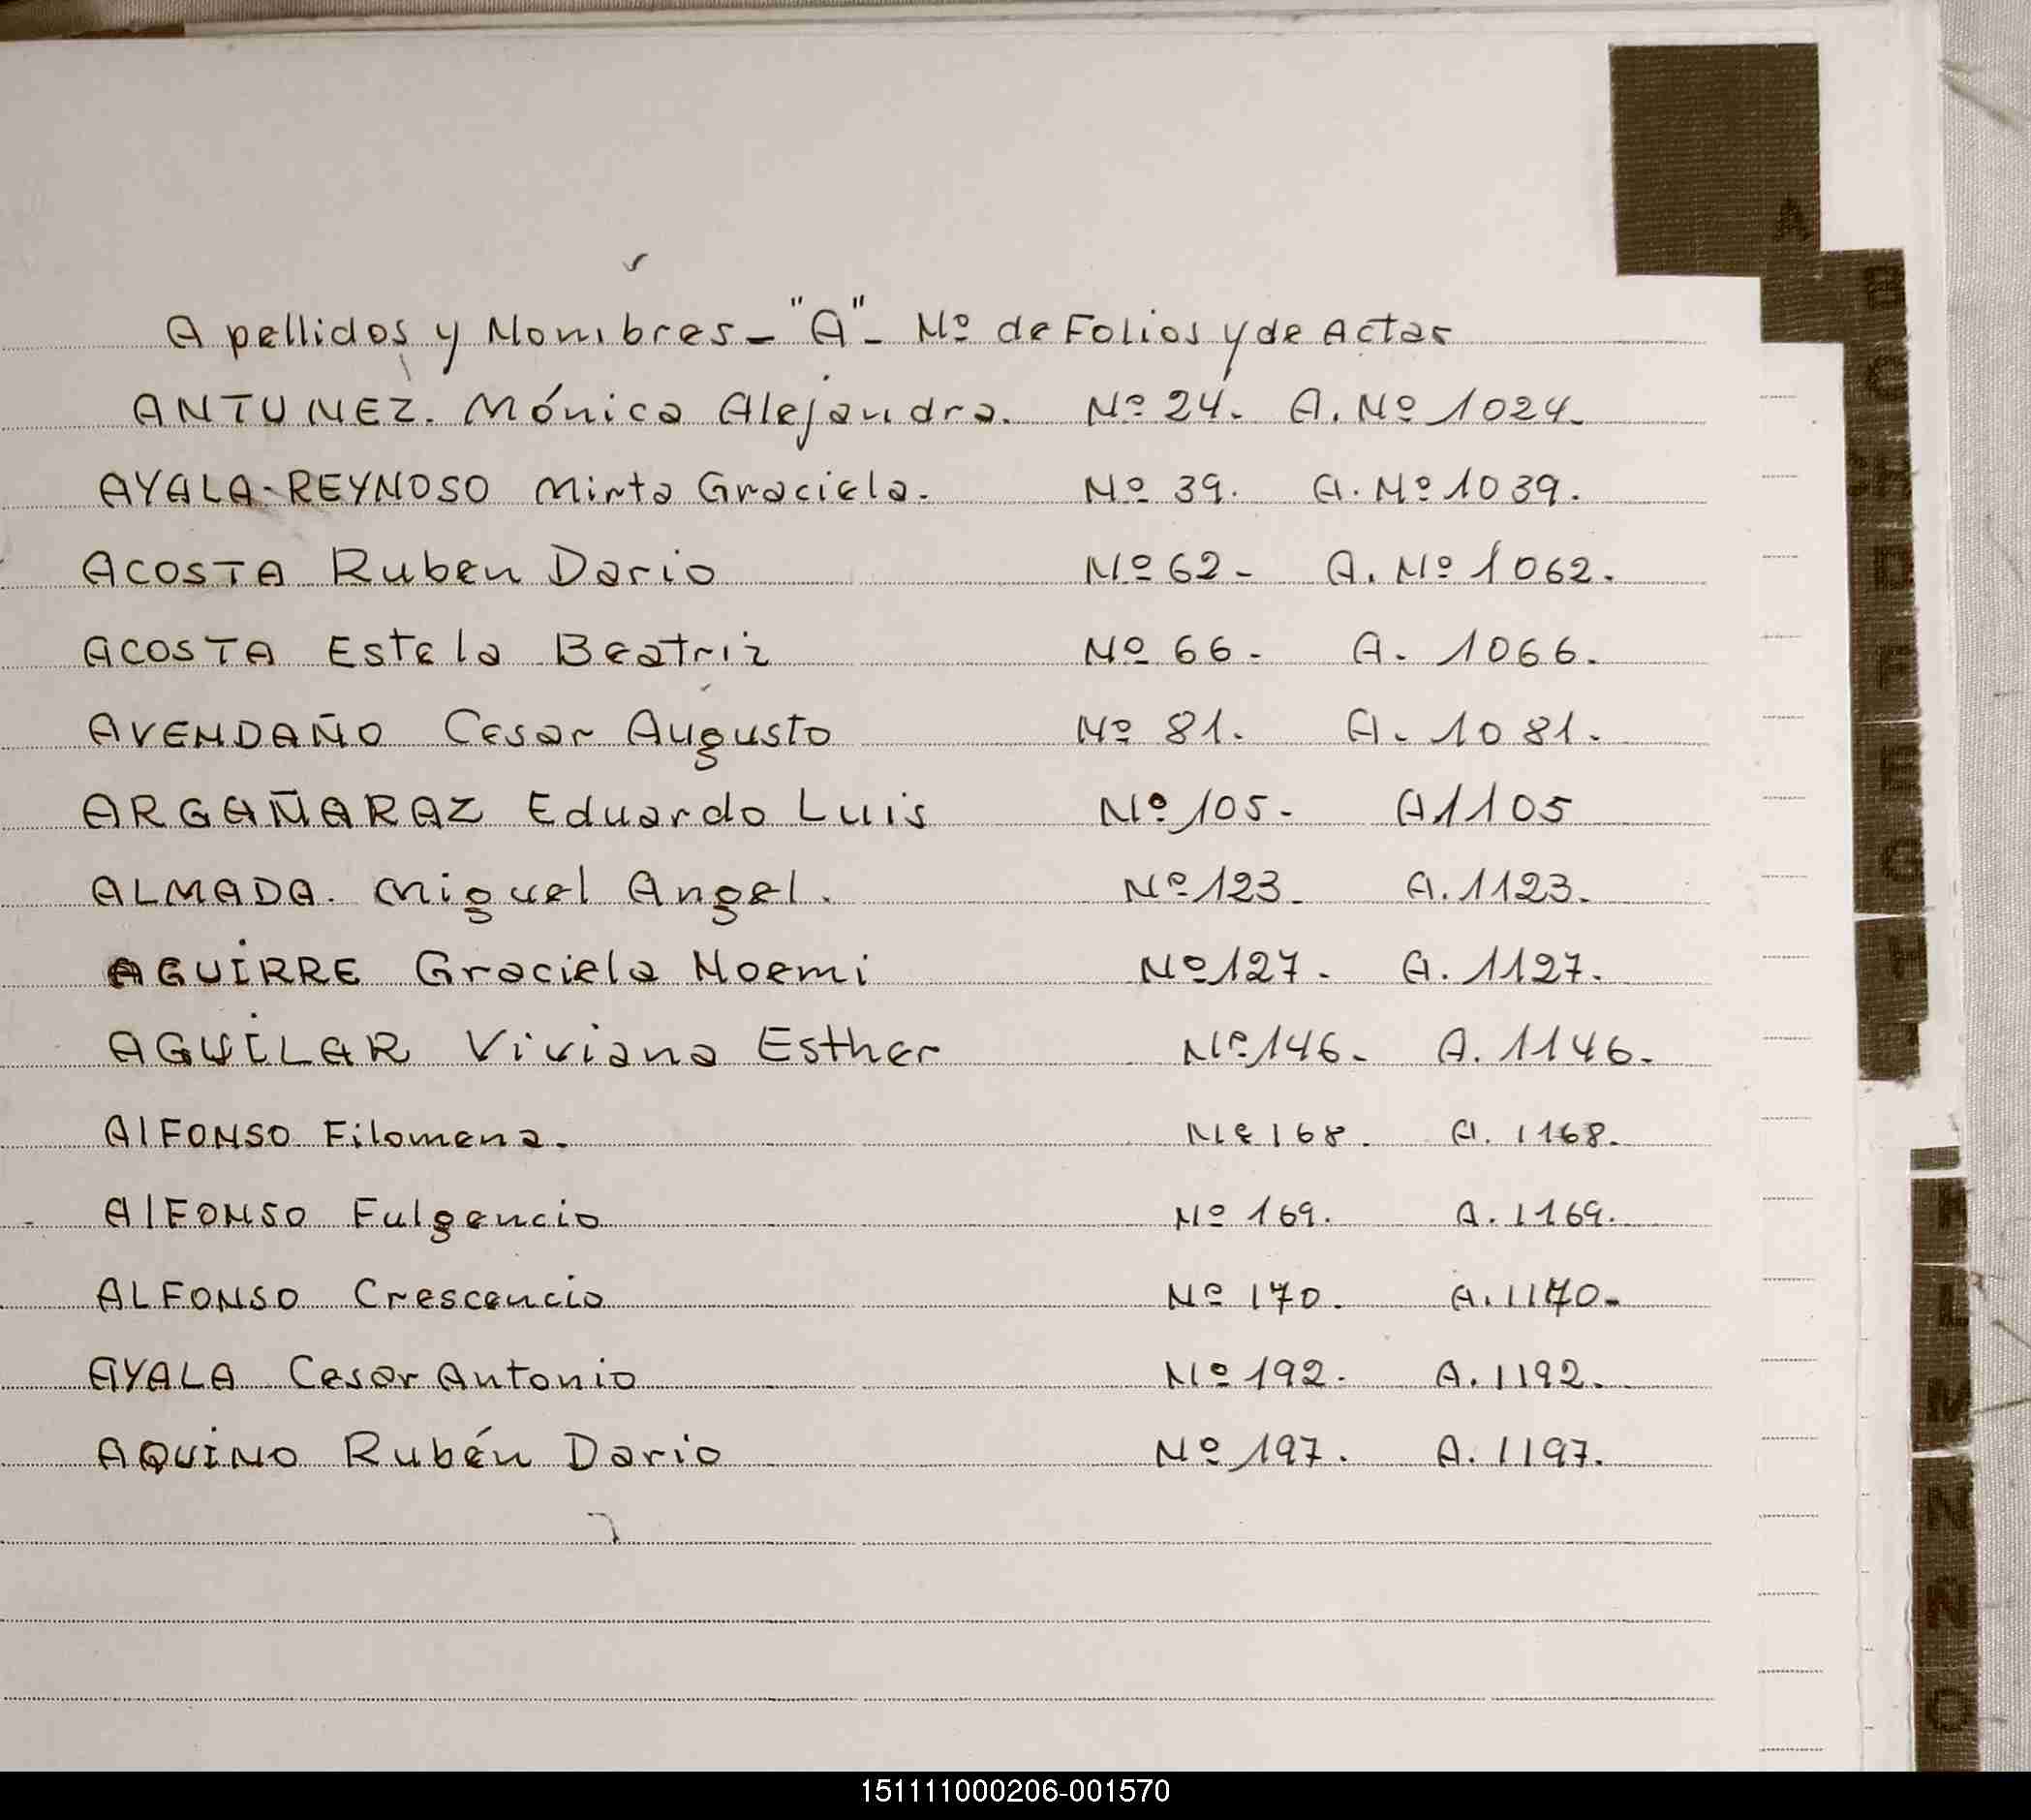 A
Apellidos y Nombres - "A" - Nº de Folios y de Actas
ANTUNEZ. Mónica Alejandra. Nº 24. A. Nº 1024.
AYALA-REYNOSO Mirta Graciela. Nº 39. A. Nº 1039.
ACOSTA Ruben Dario Nº 62- A. Nº 1062.
ACOSTA Estela Beatriz Nº 66- A. 1066.
AVENDAÑO Cesar Augusto Nº 81. A. 1081.
ARGAÑARAZ Eduardo Luis Nº 105- A 1105
ALMADA. Miguel Angel. Nº 123- A. 1123.
AGUIRRE Graciela Noemi Nº 127- A. 1127.
AGUILAR Viviana Esther Nº 146- A. 1146.
AlFONSO Filomena. Nº 168. A. 1168.
AlFONSO Fulgencio Nº 169. A. 1169.
ALFONSO Crescencio Nº 170. A. 1170-
AYALA Cesar Antonio Nº 192. A. 1192.
AQUINO Rubén Dario Nº 197. A. 1197.
B
C
D
F
E
G
H
L
M
N
Ñ
O
151111000206-001570